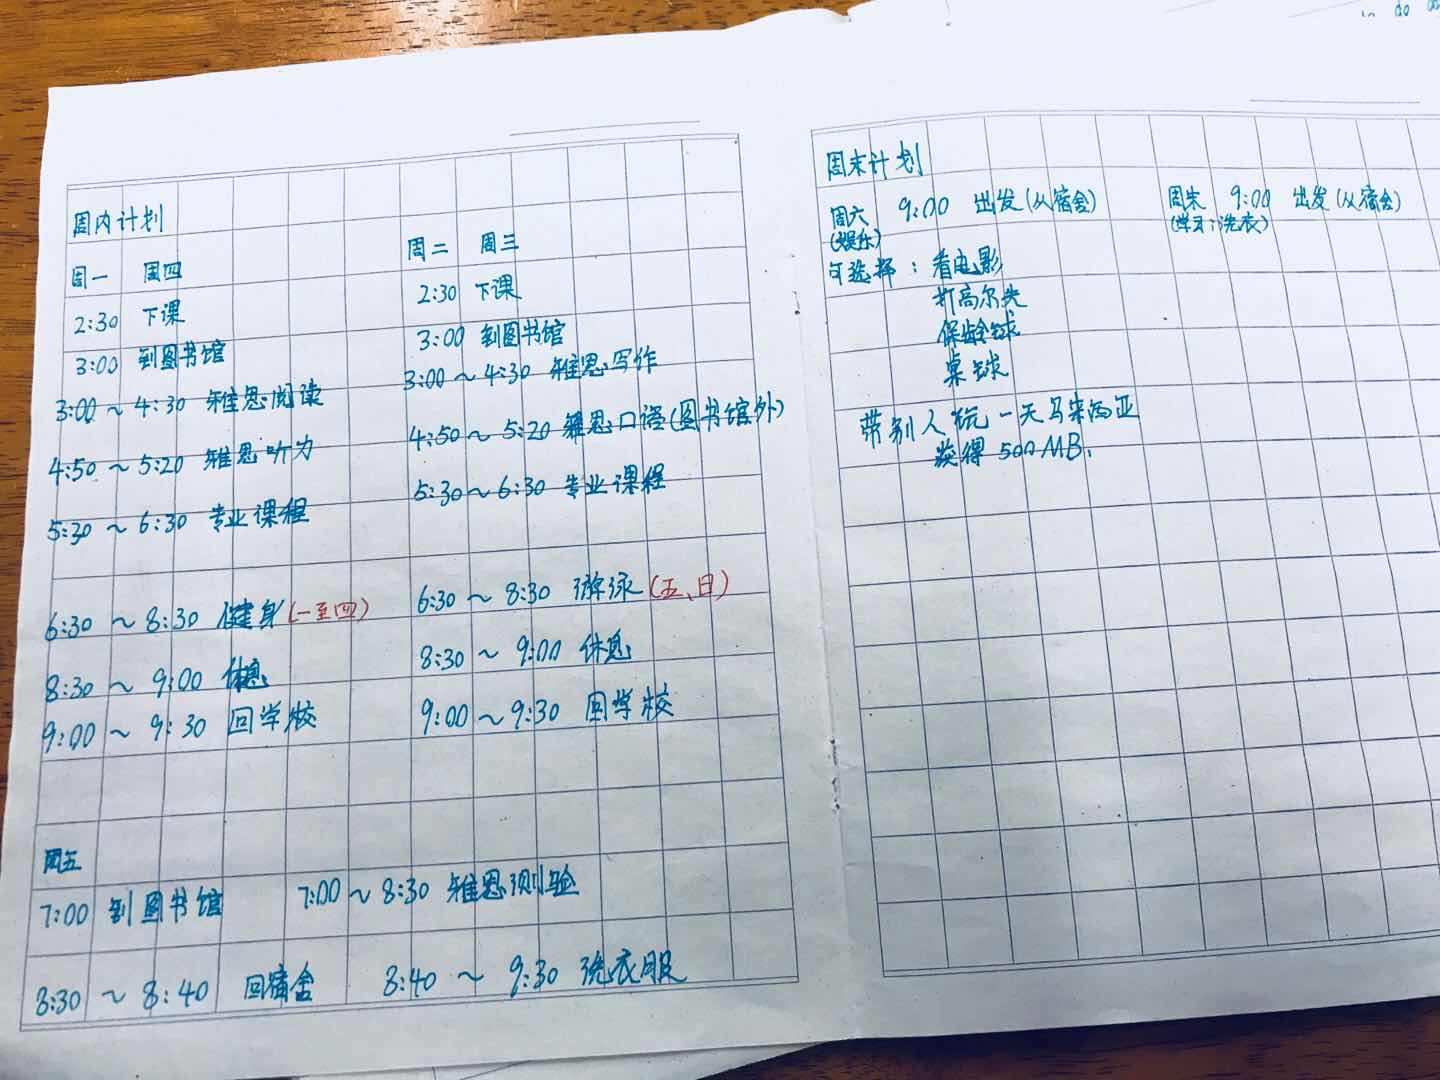 周内计划
周一 周四
2:30 下课
3:00 到图书馆
3:00～4:30 雅思阅读
4:50～5:20 雅思听力
5:30～6:30 专业课程
6:30～8:30 健身(一至四)
8:30～9:00 休息
9:00～9:30 回学校
周二 周三
2:30 下课
3:00 到图书馆
3:00～4:30 雅思写作
4:50～5:20 雅思口语(图书馆外)
5:30～6:30 专业课程
6:30～8:30 游泳(五、日)
8:30～9:00 休息
9:00～9:30 回学校
周五
7:00 到图书馆 7:00～8:30 雅思测验
8:30～8:40 回宿舍 8:40～9:30 洗衣服
周末计划
周六 9:00 出发(从宿舍)
(娱乐)
可选择：看电影
打高尔夫
保龄球
桌球
带别人玩一天马来西亚
获得500MB.
周末 9:00 出发(从宿舍)
(学习；洗衣)